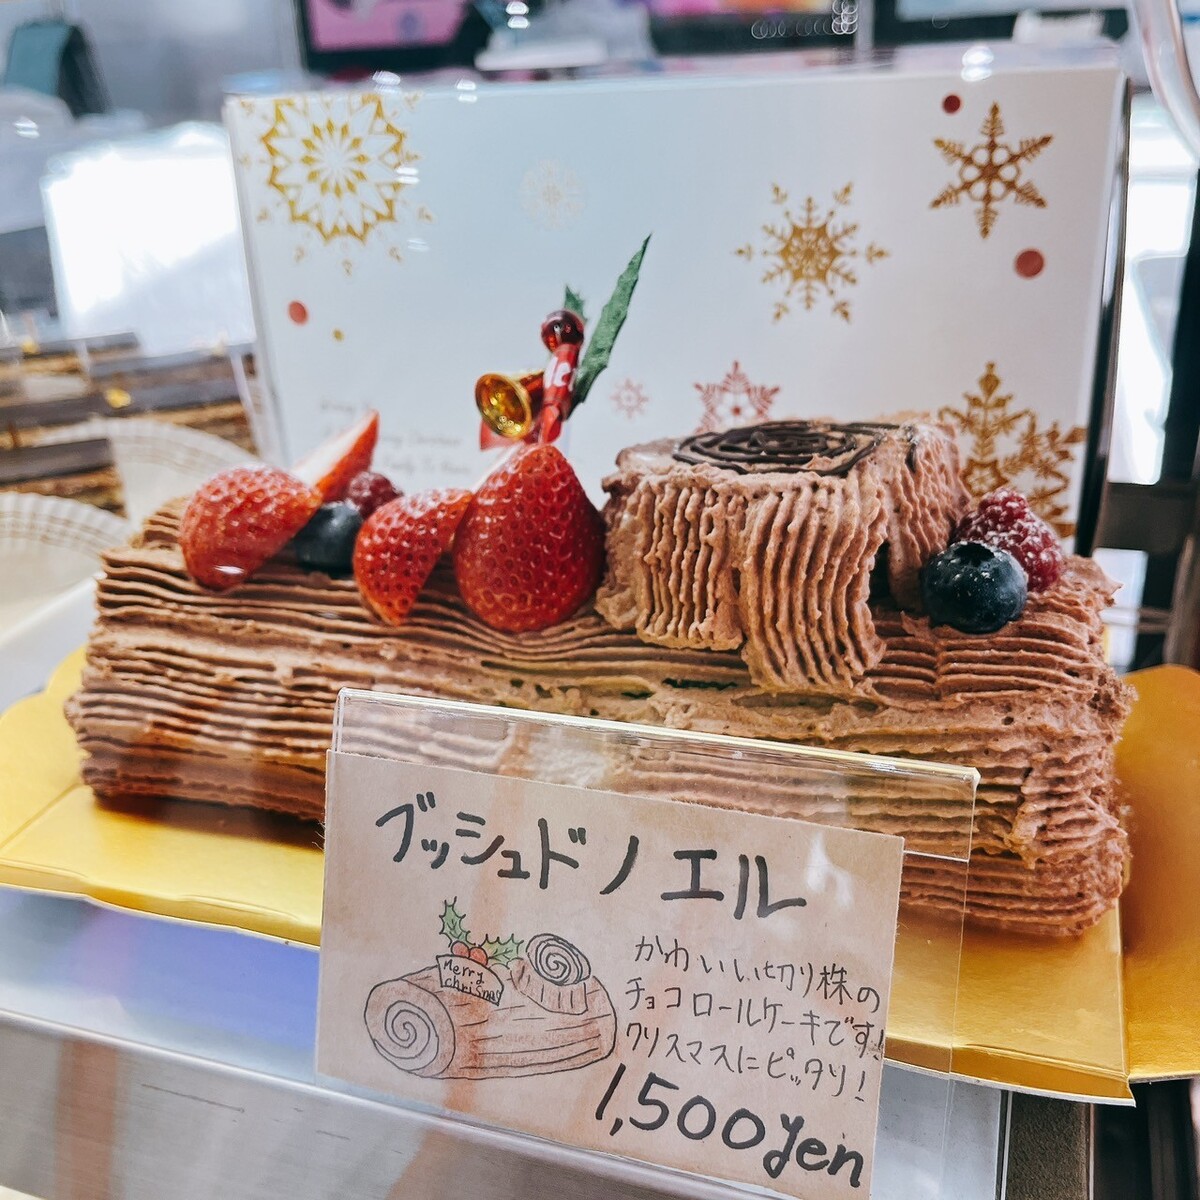 ブッシュドノエル
Merry
chriSmas
かわいい切り株の
チョコロールケーキです!
クリスマスにピッタリ!
1,500yen